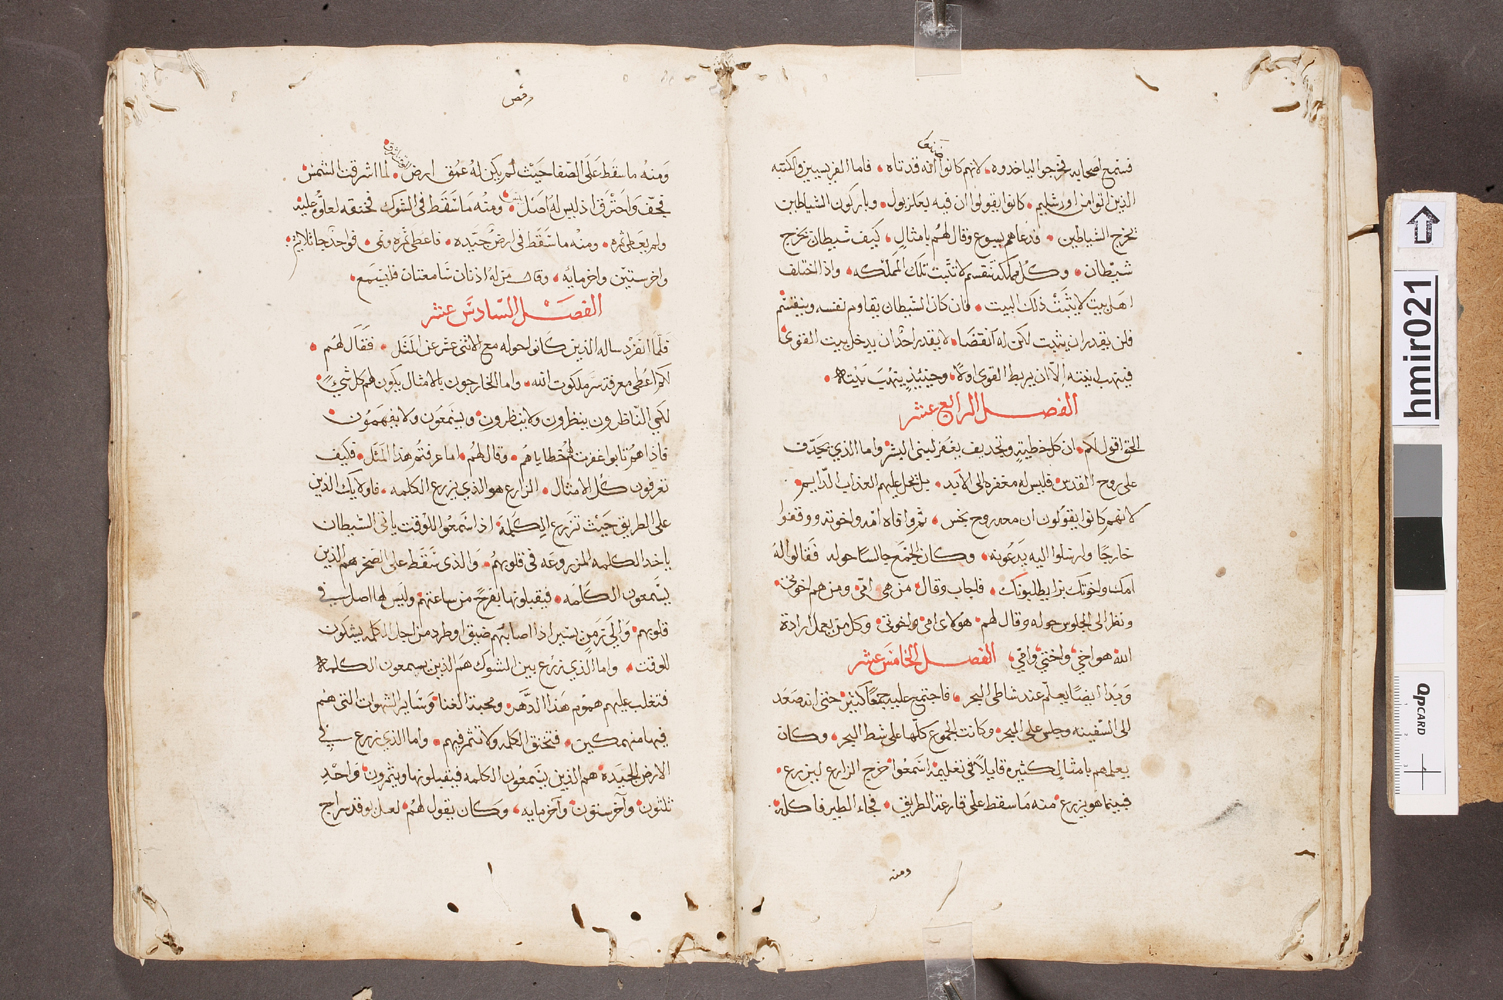 صنيعا
فسمع اصحابه فخرجوا لياخدوه لانهم كانوا قد تاه فاما الفريسيين والكتبه
الذين اتوا من اورشليم كانوا يقولوا ان فيه بعلزبول وباركون الشياطين
نخرج الشياطين فدعاهم يسوع وقال لهم بامثال كيف شيطان يخرج
شيطان وكل مملكه تنقسم لا تثبت تلك المملكه واذا اختلف
اهل بيت لا يثبت ذلك البيت فان كان الشيطان يقاوم نفسه وينقسم
فلن يقدر ان يثبت لكن له انقضا لا يقدر احد ان يدخل بيت القوى
فينهب انيته الا ان يربط القوى اولا وحينيذ ينهب بيته
الفصل الرابع عشر
الحق اقول لكم ان كل خطية وتجديف يغفر لبنى البشر واما الذي يجدف
على روح القدس فليس له مغفره الى الابد بل يحل عليهم العذاب الدايم
لانهم كانوا يقولون ان معه روح نجس ثم وافاه امه واخوته ووقفوا
خارجا وارسلوا اليه يدعونه وكان الجمع جالسا حوله فقالوا له
امك واخوتك برا يطلبونك فاجاب وقال من هى امى ومن هم اخوتى
ونظر الى الجلوس حوله وقال لهم هولاى امى واخوتى وكل من يعمل ارادة
الله هو اخي واختي وامي الفصل الخامس عشر
وبدا ايضا يعلم عند شاطى البحر فاجتمع عليه جمعا كثير حتى انه صعد
الى السفينه وجلس على البحر وكانت الجموع كلها على شط البحر وكان
يعلمهم بامثال كثيره قايلا فى تعليمه اسمعوا خرج الزارع ليزرع
فبينما هو يزرع منه ما سقط على قارعة الطريق فجاء الطير فاكله
ومنه
ومنه ما سقط على الصفا حيث لم يكن له عمق ارض لما اشرقت الشمس
فجف واحترق اذ ليس له اصل ومنه ما سقط فى الشوك فخنقه لعلوه عليه
ولم يعطى ثمره ومنه ما سقط فى ارض جيده فاعطى ثمره ونمى فواحد جا ثلاثين
واخر ستين واخر مايه وقال من له اذنان سامعتان فليسمع
الفصل السادس عشر
فلما انفرد ساله الذين كانوا حوله مع الاثنى عشر عن المثل فقال لهم
لكم اعطى معرفة سر ملكوت الله واما الخارجون بالامثال يكون لهم كل شي
لكى الناظرون ينظرون ولا ينظرون ويسمعون ولا يفهمون
فاذا هم تابوا غفرت لهم خطاياهم وقال لهم اما عرفتم هذا المثل فكيف
تعرفون كل الامثال الزارع هو الذي يزرع الكلمه فاولايك الذين
على الطريق حيث تزرع الكلمة اذا سمعوا للوقت ياتى الشيطان
ياخد الكلمه المزروعه فى قلوبهم والذى سقط على الصخر هم الذين
يسمعون الكلمه فيقبلونها بفرح من ساعتهم وليس لها اصل في
قلوبهم والى زمن يسير اذا اصابهم ضيق او طرد من اجل الكلمه يشكون
للوقت واما الذي زرع بين الشوك هم الذين يسمعون الكلمه
فتغلب عليهم هموم هذا الدهر ومحبة الغنا وساير الشهوات التى هم
فيها منهمكين فتخنق الكلمه ولا تثمر فيهم واما الذي زرع في
الارض الجيده هم الذين يسمعون الكلمه فيقبلونها ويثمرون واحد
ثلثون وآخر ستون وآخر مايه وكان يقول لهم لعل يوقد سراج
hmir021
QPCARD